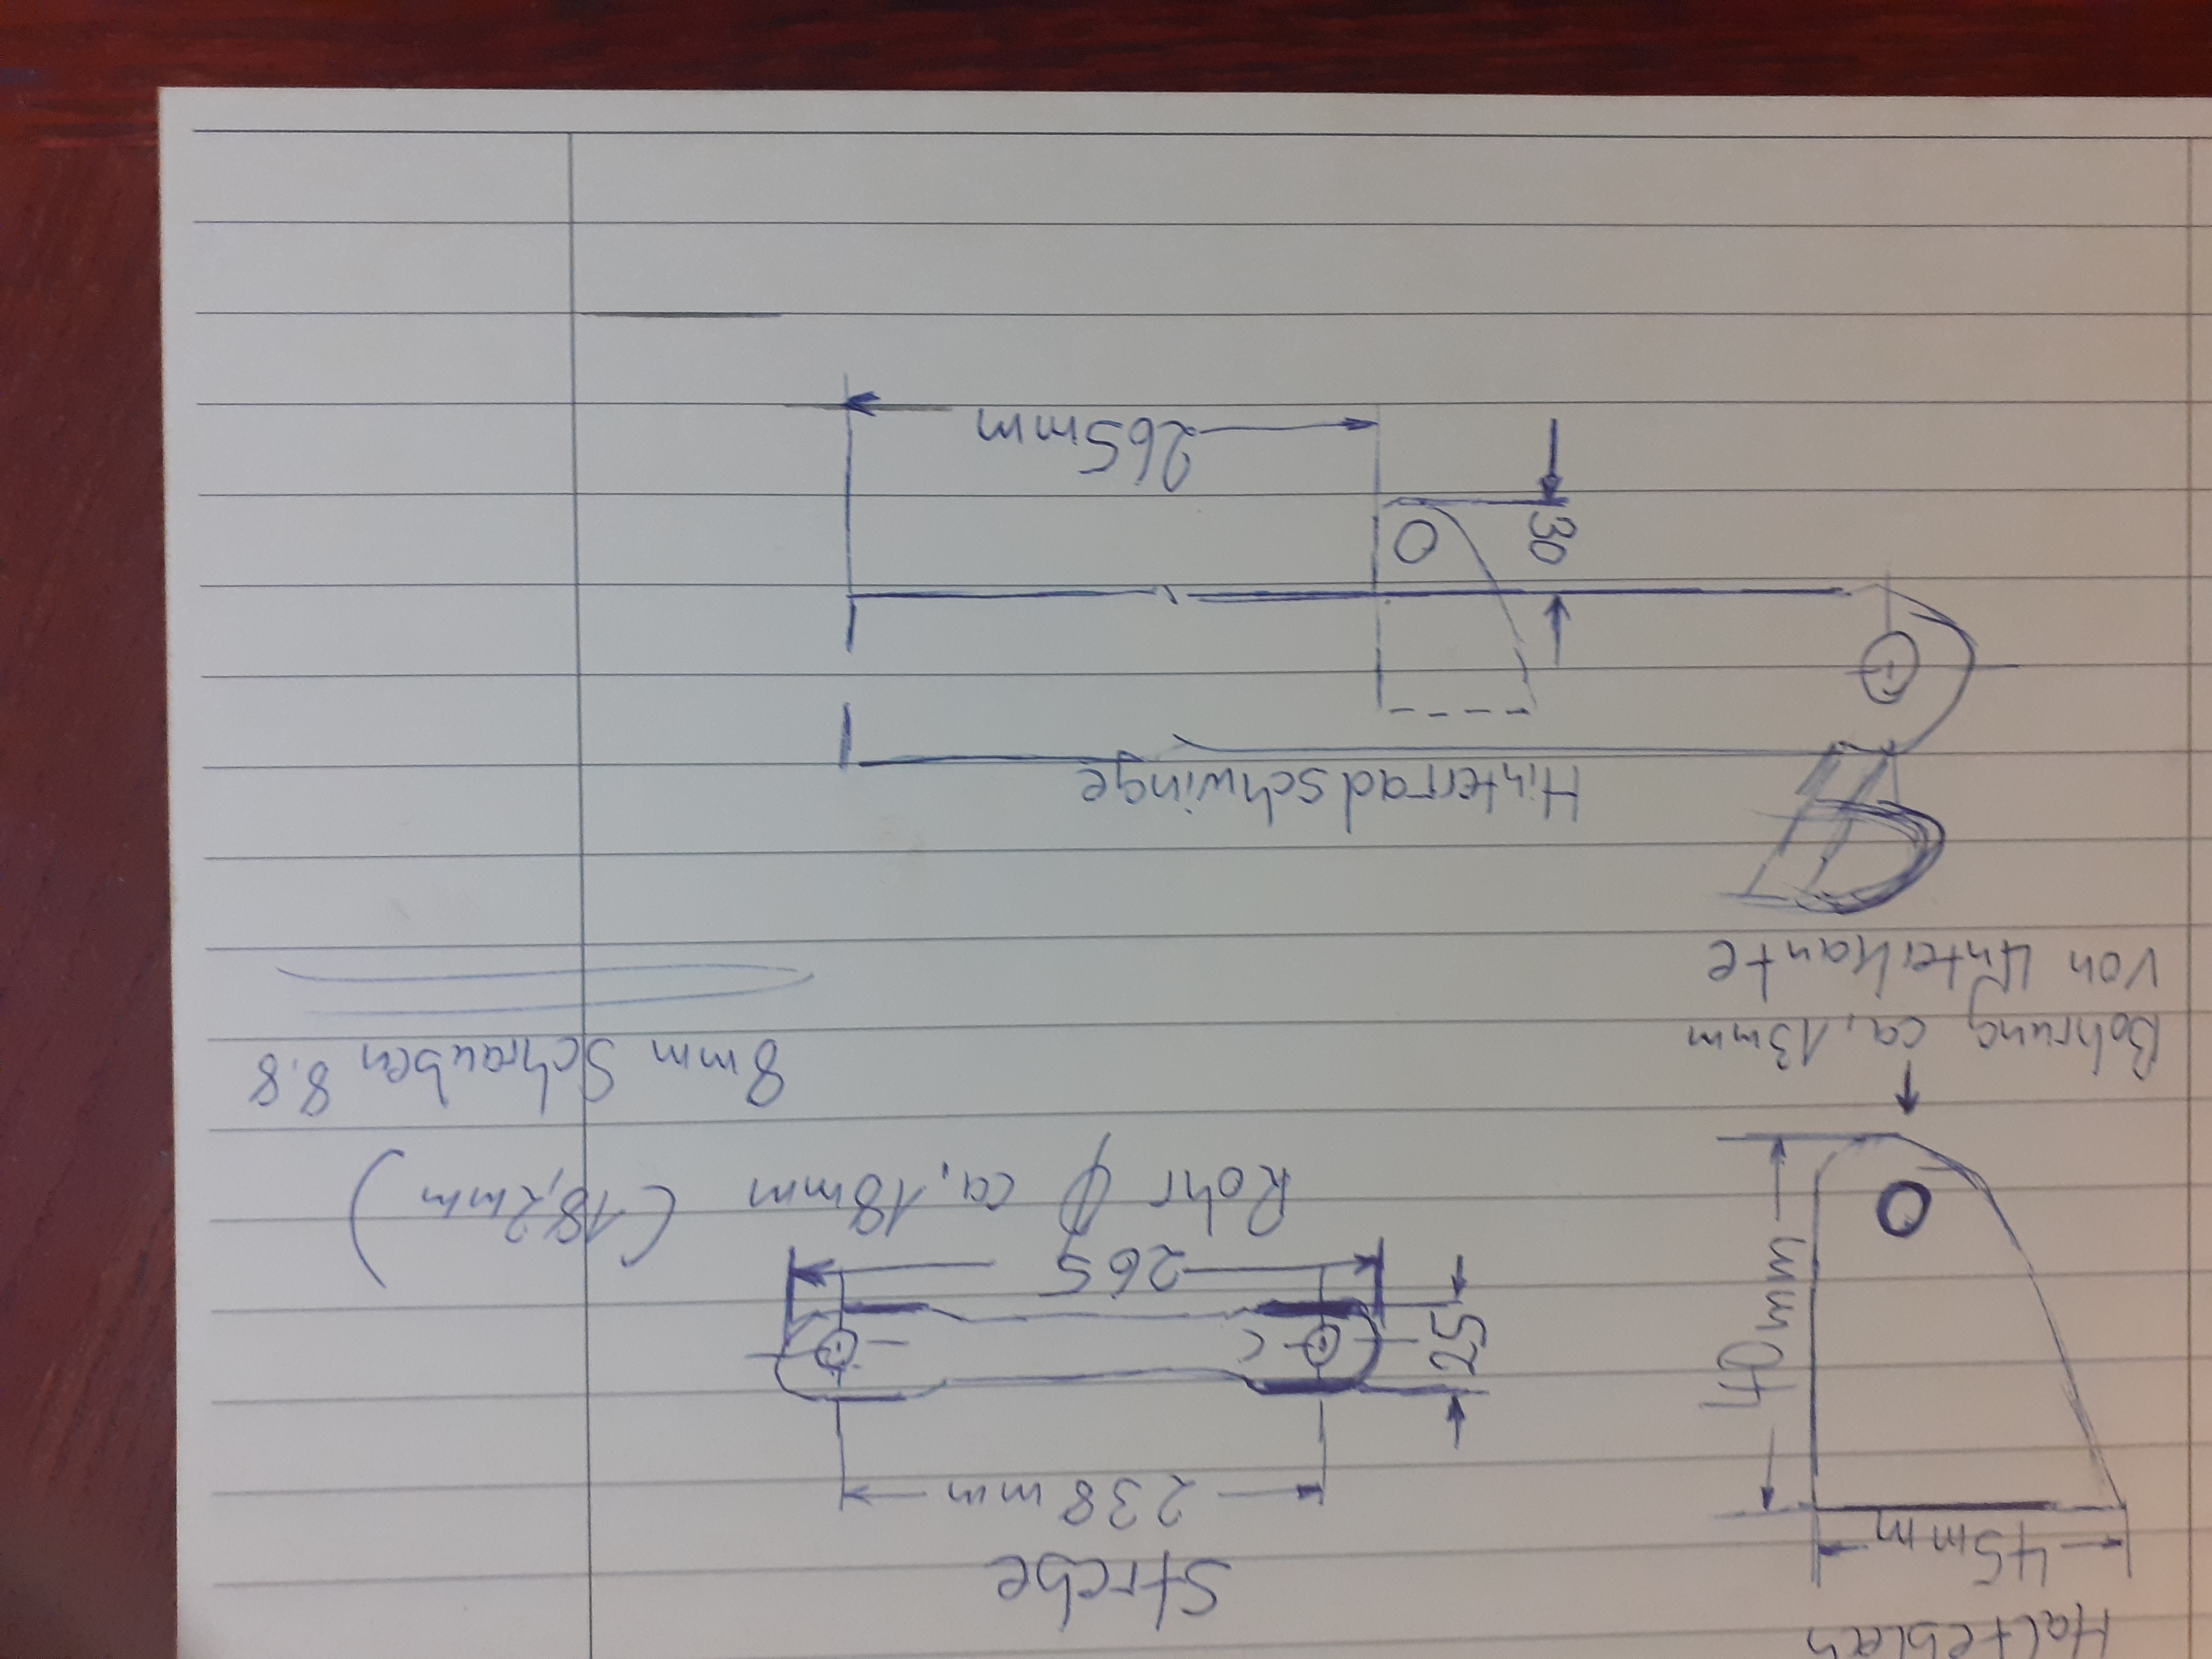 Halteblech
45mm
40mm
Bohrung ca. 13mm
von Unterkante
Strebe
238 mm
25
265
Rohr ϕ ca. 18mm (18,2mm)
8mm Schrauben 8.8
Hinterradschwinge
30
265mm